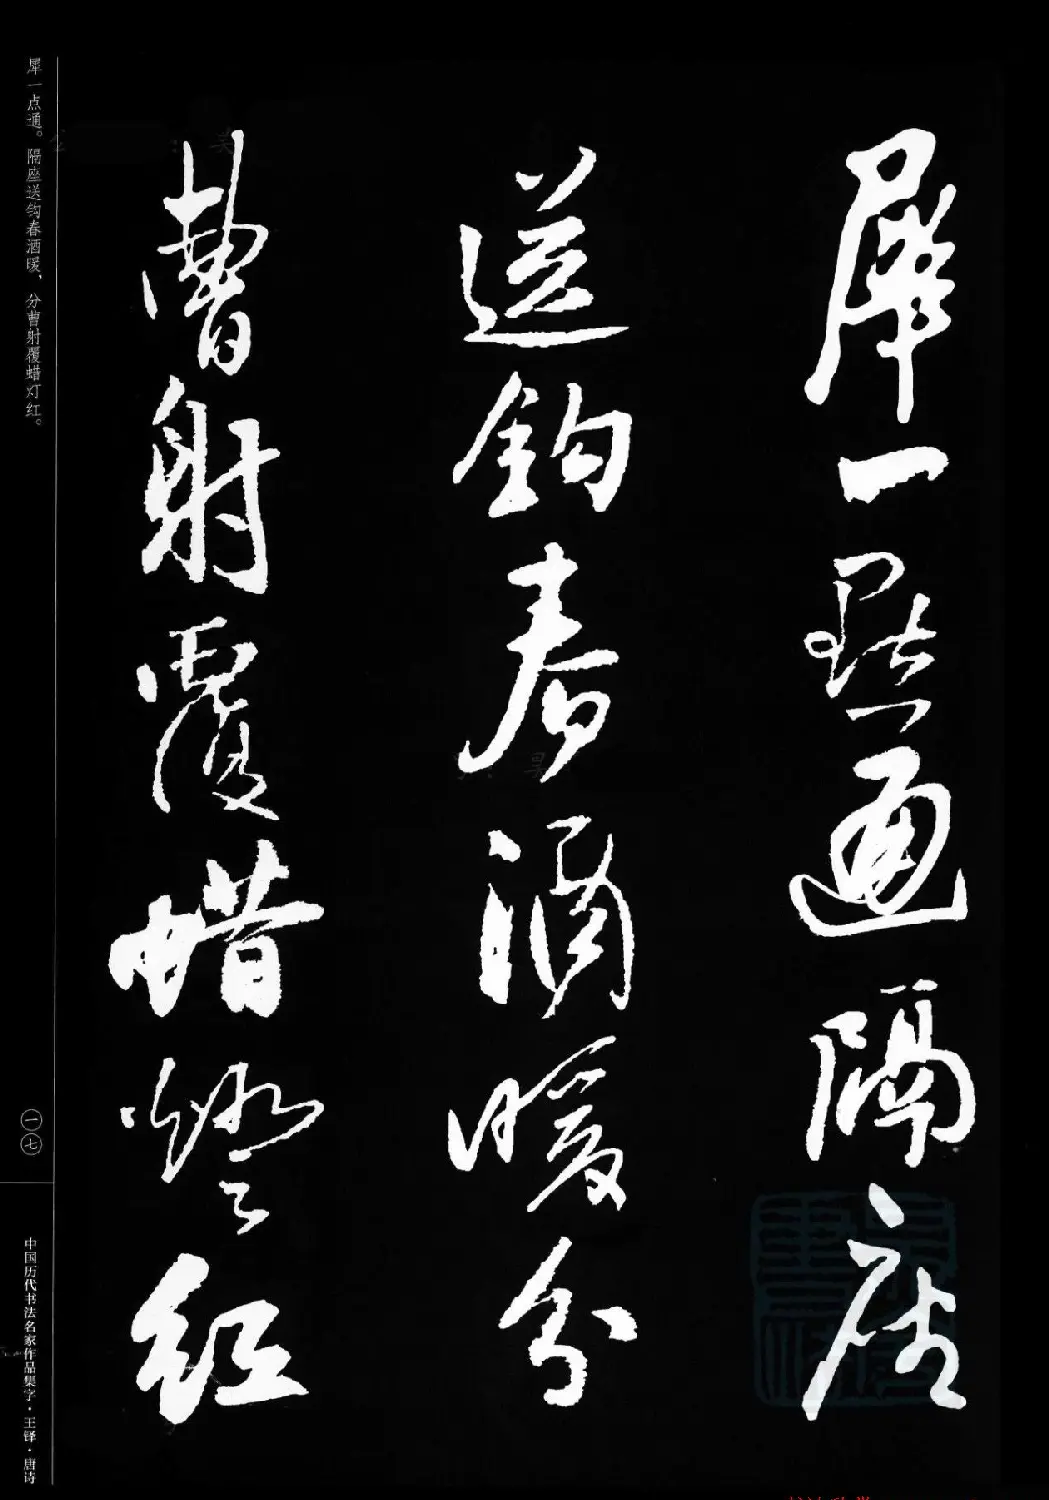 犀一點通隔座
送鈎春酒暖分
曹射覆蜡燈紅
犀一点通。隔座送钩春酒暖，分曹射覆蜡灯红。
一七
中国历代书法名家作品集字·王铎·唐诗